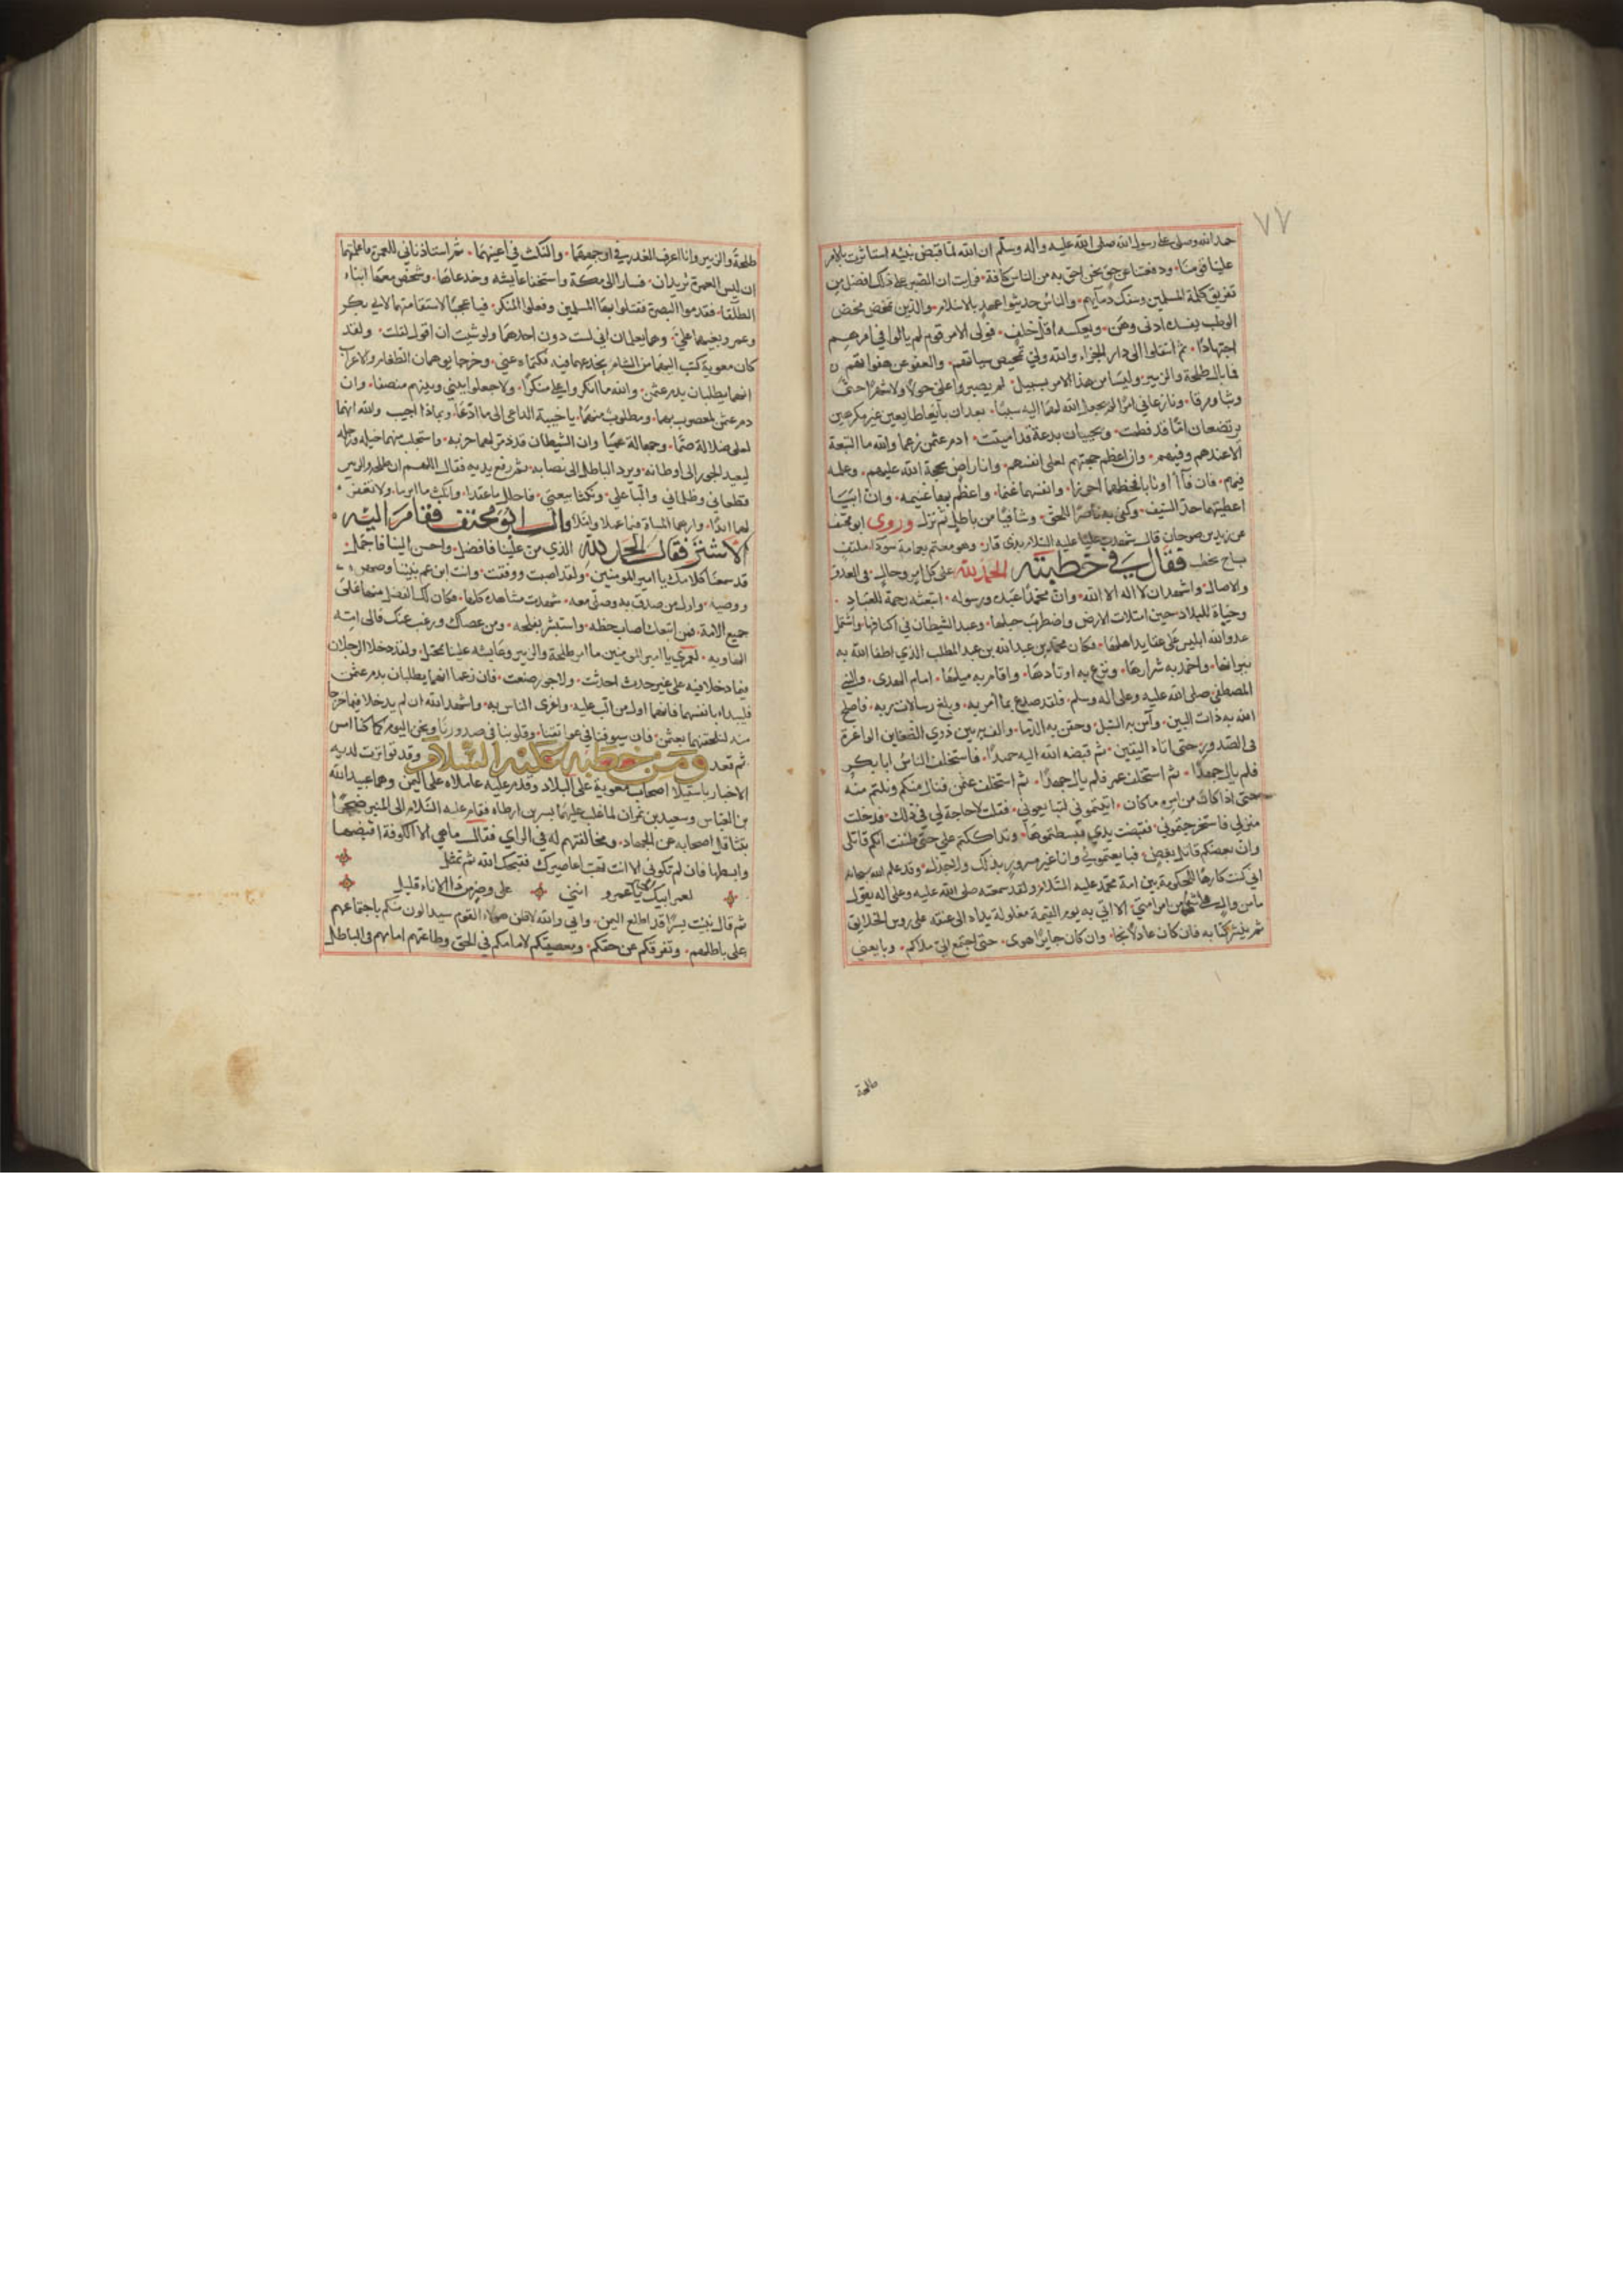 ٧٧
حمد الله وصلى على رسول الله صلى الله عليه وآله وسلم ان الله لما قبض نبيه استاثرت بالامر
علينا قومنا ودفعتنا عن حق نحن احق به من الناس كافة فرايت ان الصبر على ذلك افضل من
تفريق كلمة المسلمين وسفك دمآيهم والناس حديثوا عهد بالاسلام والدين يمخض مخض
الوطب يفسده ادنى وهن ويعكسه اقل خلف فولى الامر قوم لم يالوا في امرهم
اجتهادا ثم انتقلوا الى دار الجزاء والله ولي تمحيص سياتهم والعفو عن هفواتهم
فما بال طلحة والزبير وليسا من هذا الامر بسبيل لم يصبروا علي حولا ولا شهرا حتى
وثبا ومرقا ونازعاني امرا لم يجعل الله لهما اليه سبيلا بعد ان بايعا طايعين غير مكرهين
يرتضعان اما قد فطمت ويحييان بدعة قد اميتت ادم عثمن زعما والله ما التبعة
الا عندهم وفيهم وان اعظم حجتهم لعلى انفسهم وانا راض بحجة الله عليهم وعلمه
فيهم فان فآآ اونابا فحظهما احرزا وانفسهما غنما واعظم بها غنيمه وان ابيا
اعطيتهما حد السيف وكفى به ناصرا للحق وشافيا من باطل ثم نزل وروى ابو مخنف
عن زيد بن صوحان قال شهدت عليا عليه السلام بذي قار وهو معتم بعمامة سودا ملتف
بساج يخطب فقال في خطبته الحمد لله على كل امر وحال في الغدو
والاصال واشهد ان لا اله الا الله وان محمدا عبده ورسوله ابتعثه رحمة للعباد
وحياة للبلاد حين امتلات الارض واضطرب حبلها وعبد الشيطان في اكنافها واشتمل
عدو الله ابليس على عقايد اهلها فكان محمد بن عبد الله بن عبد المطلب الذي اطفا الله به
نيرانها واخمد به شرارها ونزع به اوتادها واقام به ميلها امام الهدى والنبي
المصطفى صلى الله عليه وعلى اله وسلم فلقد صدع بما أمر به وبلغ رسالات ربه فاصلح
الله به ذات البين وآمن به السبل وحقن به الدما والف به بين ذوي الضغاين الواغرة
في الصدور حتى اتاه اليقين ثم قبضه الله اليه حميدا فاستخلف الناس ابا بكر
فلم يال جهدا ثم استخلف عمر فلم يال جهدا ثم استخلف عثمن فنال منكم ونلتم منه
حتى اذا كان من امره ما كان اتيتموني لتبايعوني فقلت لا حاجة لي في ذلك فدخلت
منزلي فاستخرجتموني فقبضت يدي فبسطتموها وتداككتم علي حتى ظننت انكم قاتلي
وان بعضكم قاتل بعض فبايعتموني وانا غير مسرور بذلك ولا جذل وقد علم الله سبحانه
اني كنت كارها للحكومة بين امة محمد عليه السلام ولقد سمعته صلى الله عليه وعلى اله يقول
ما من وال يلي شيئا من امر امتي الا اتي به يوم القيمة مغلولة يداه الى عنقه على روس الخلايق
ثم ينشر كتابه فان كان عادلا نجا وان كان جايرا هوى حتى اجتمع الي ملاكم وبايعني
طلحة
طلحة والزبير وانا اعرف الغدر في اوجههما والنكث في اعينهما ثم استاذناني للعمرة فاعلمتهما
ان ليس العمرة تريدان فسارا الى مكة واستخفا عايشه وخدعاها وشخص معهما ابناء
الطلقا فقدموا البصرة فقتلوا بها المسلمين وفعلوا المنكر فيا عجبا لاستقامتهما لابي بكر
وعمر وبغيهما علي وهما يعلمان اني لست دون احدهما ولو شيت ان اقول لقلت ولقد
كان معوية كتب اليهما من الشام يخدعهما فيه فكتماه عني وخرجا يوهمان الطغام والاعراب
انهما يطلبان بدم عثمن والله ما انكروا علي منكرا ولا جعلوا بيني وبينهم منصفا وان
دم عثمن لمعصوب بهما ومطلوب منهما يا خيبة الداعي الى ما ادعا وبماذا اجيب والله انهما
لعلى ضلالة صما وجهالة عميا وان الشيطان قد ذمر لهما حزبه واستجلب منهما خيله ورجله
ليعيد الجور الى اوطانه ويرد الباطل الى نصابه ثم رفع يديه فقال اللهم ان طلحة والزبير
قطعاني وظلماني والبا علي ونكثا بيعتي فاحلل ما عقدا وانكث ما ابرما ولا تغفر
لهما ابدا وارهما المساة فيما عملا واملا قال ابو مخنف فقام اليه
الاشتر فقال الحمد لله الذي من علينا فافضل واحسن الينا فاجمل
قد سمعنا كلامك يا امير المومنين ولقد اصبت ووفقت وانت ابن عم نبينا وصهره
ووصيه واول من صدق به وصلى معه شهدت مشاهده كلها فكان لك الفضل منها على
جميع الامة فمن اتبعك اصاب حظه واستبشر بفلجه ومن عصاك ورغب عنك فالى امه
الهاويه لعمري يا امير المومنين ما امر طلحة والزبير وعايشه علينا بمخيل ولقد دخل الرجلان
فيما دخلا فيه على غير حدث احدثت ولا جور صنعت فان زعما انهما يطلبان بدم عثمن
فليبداء بانفسهما فانهما اول من الب عليه واغرى الناس به واشهد الله ان لم يدخلا فيما خرجا
منه لنلحقنهما بعثمن فان سيوفنا في عواتقنا وقلوبنا في صدورنا ونحن اليوم كما كنا امس
ثم قعد ومن خطبه عليه السلام وقد تواترت لديه
الاخبار باستيلا اصحاب معوية على البلاد وقدم عليه عاملاه على اليمن وهما عبيد الله
بن العباس وسعيد بن نمران لما غلب عليهما بسر بن ارطاه فقام عليه السلام الى المنبر ضجرا
بتثاقل اصحابه عن الجهاد ومخالفتهم له في الراي فقال ما هي الا الكوفة اقبضها
وابسطها فان لم تكوني الا انت تهب اعاصيرك فقبحك الله ثم تمثل
لعمر ابيك الخير يا عمرو انني على وضر من ذا الاناء قليل
ثم قال نبيت بسرا قد اطلع اليمن واني والله لاظن هولاء القوم سيدالون منكم باجتماعهم
على باطلهم وتفرقكم عن حقكم وبمعصيتكم لامامكم في الحق وطاعتهم امامهم في الباطل